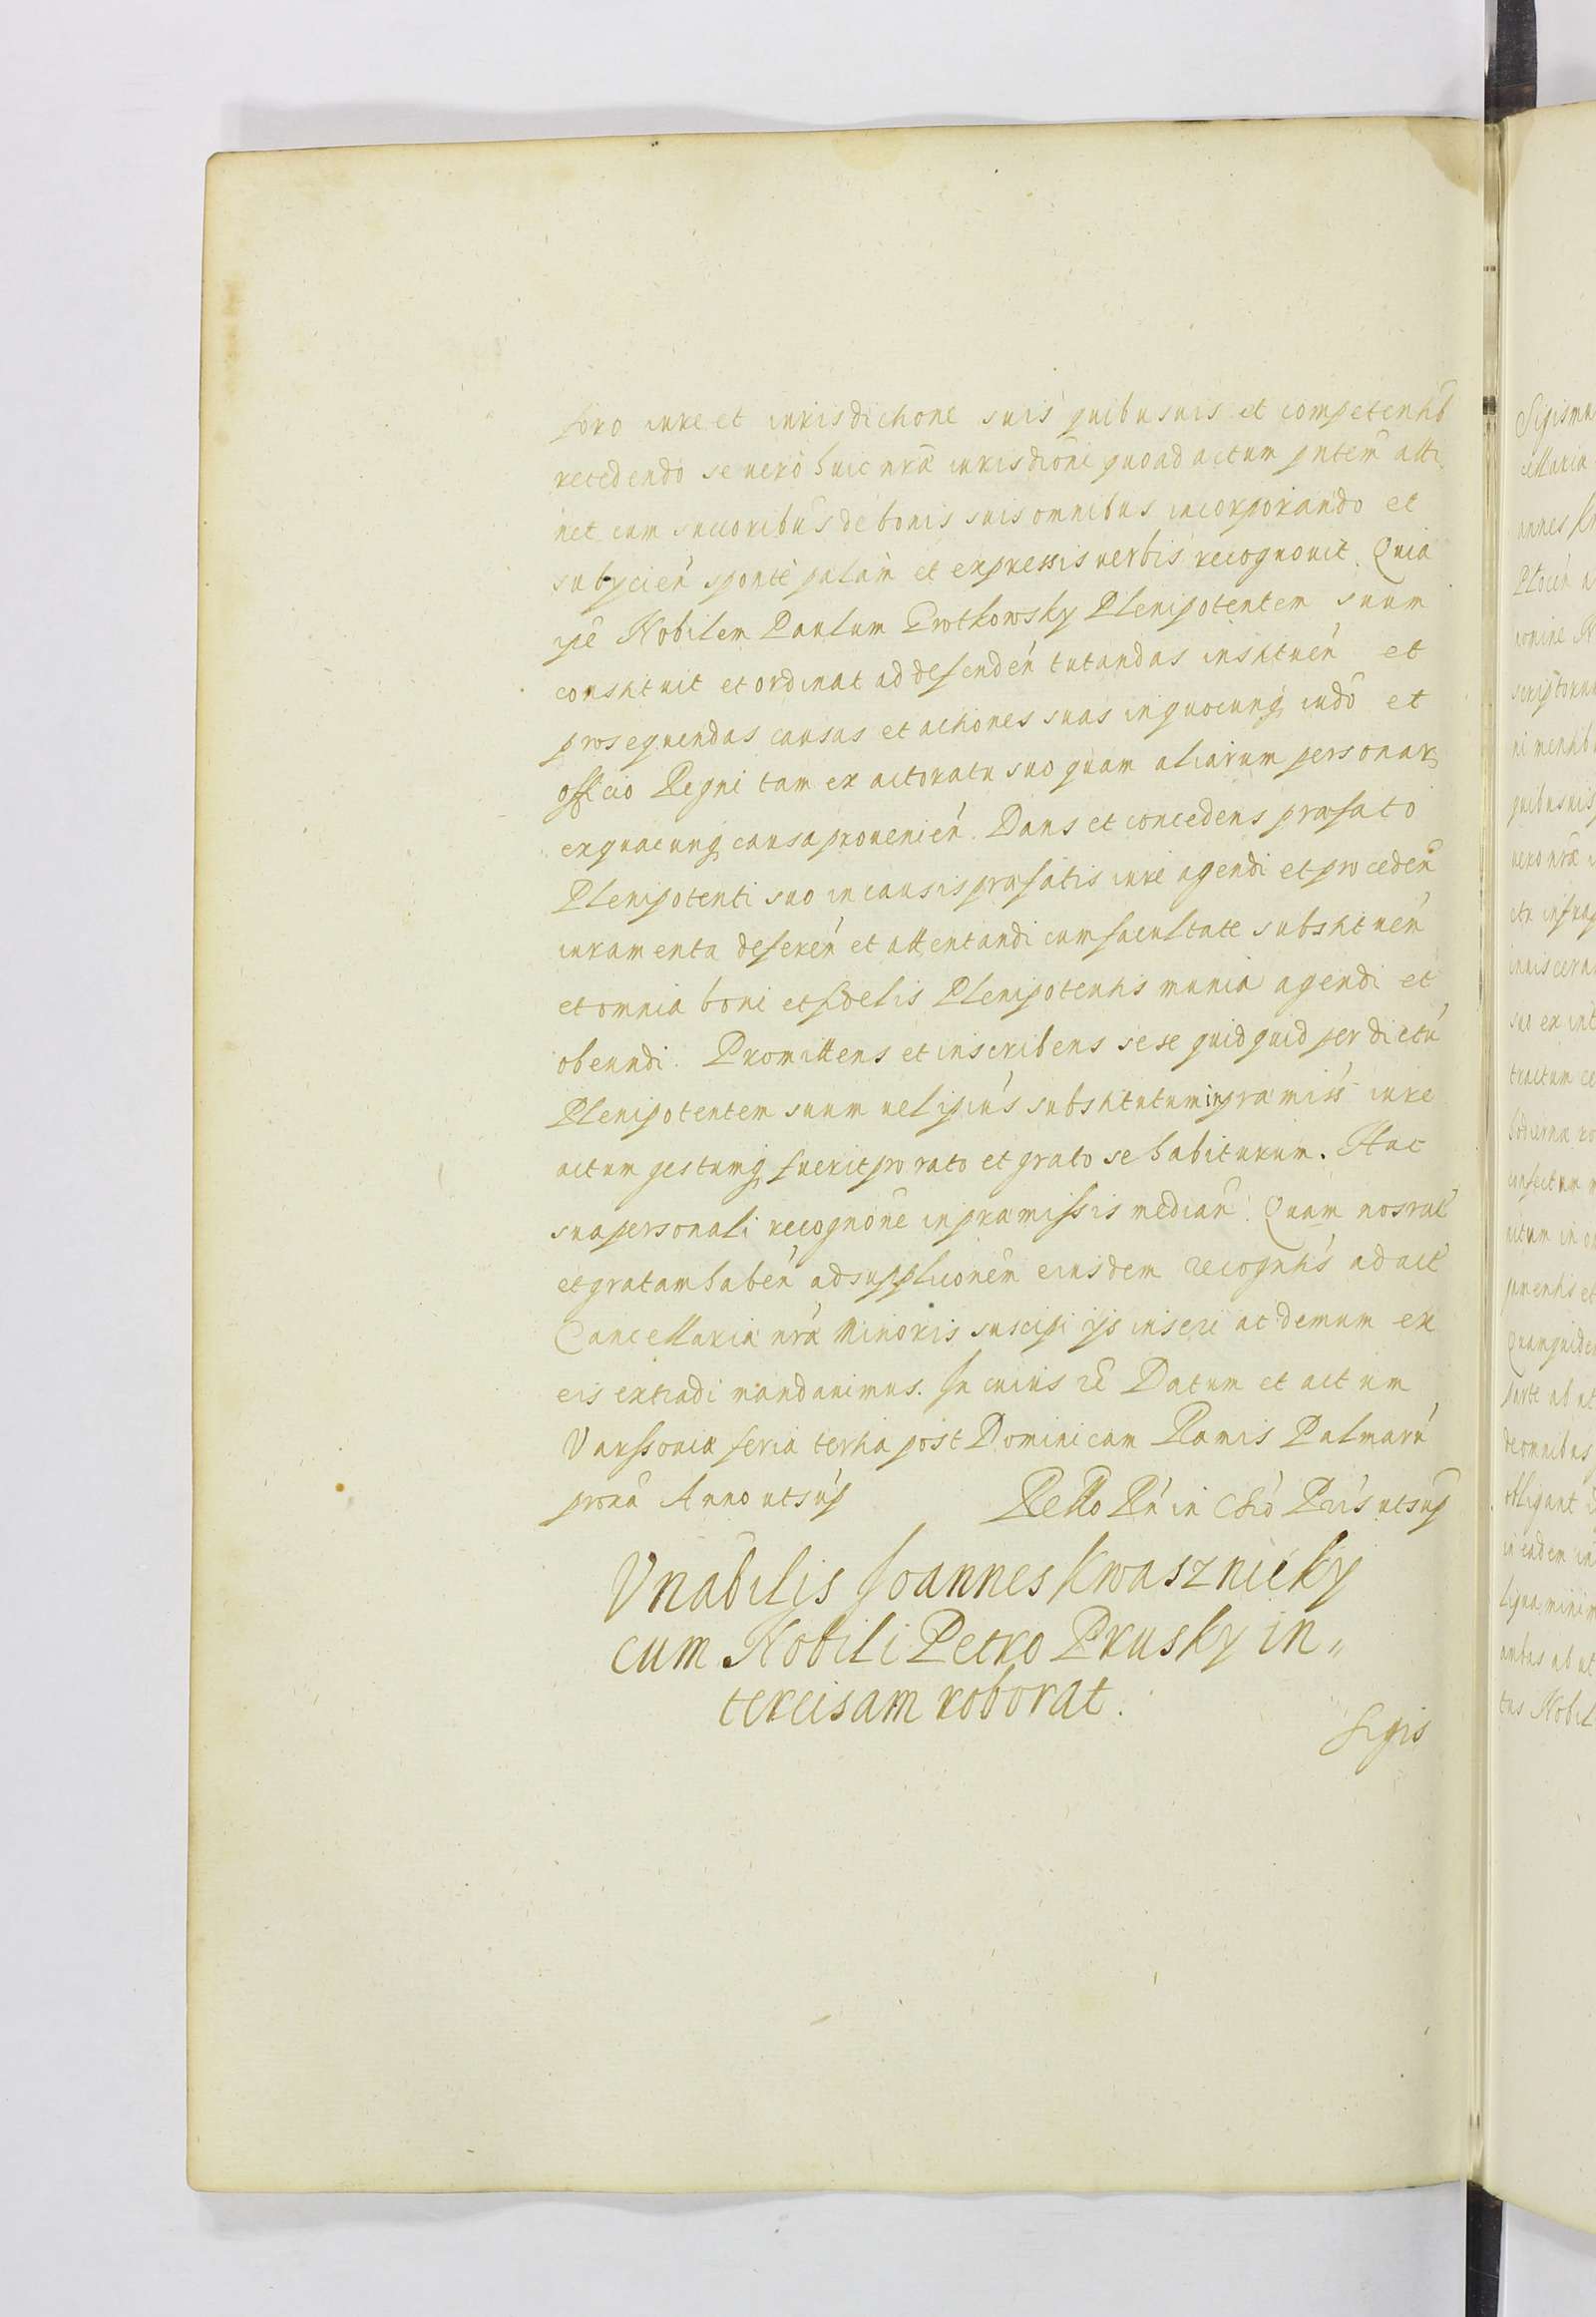 foro iure et iurisdictione suis quibusuis et competentib
recedendo se uero huic nrae iurisdioni quoad actum pntem atti
net cum succoribus de bonis suis omnibus incorporando et
subÿcien sponte palam et expressis uerbis recognouit. Quia
ipe Nobilem Paulum Protkowsky Plenipotentem suum
constituit et ordinat ad defenden tutandas instituen et
prosequendas causas et actiones suas in quocunq iudo et
officio Regni tam ex actoratu suo quam aliarum personar
ex quacunq causa prouenien. Dans et concedens praefato
Plenipotenti suo in causis praefatis iure agendi et proceden
iuramenta deferen et attentandi cum facultate substituen
et omnia boni et fidelis Plenipotentis munia agendi et
obeundi. Promittens et inscribens sese quidquid per dictu
Plenipotentem suum uel ipius substitutum in praemiss iure
actum gestumq fuerit pro rato et grato se habiturum. Hac
sua personali recognone in praemissis median. Quam nos rat
et gratam haben ad supplicionem eiusdem recogntis ad act
Cancellariae nrae Minoris suscipi ijs inseri ac demum ex
eis extradi mandauimus. In cuius rei Datum et actum
Varssouiae feria tertia post Dominicam Ramis Palmaru
proxa Anno ut sup
Relto Rn in Chro Pris ut sup
Vnabilis Joannes Kwasznicky
cum Nobili Petro Prusky in„
tercisam roborat.
Sigis
Sigismu
cellaria
annes
Plocen
scriptorum
quibusuis
uero nrae
tractum
Quamquidem
parte ab
de omnibus
obligant
in eadem
ambas ab
tus Nobil